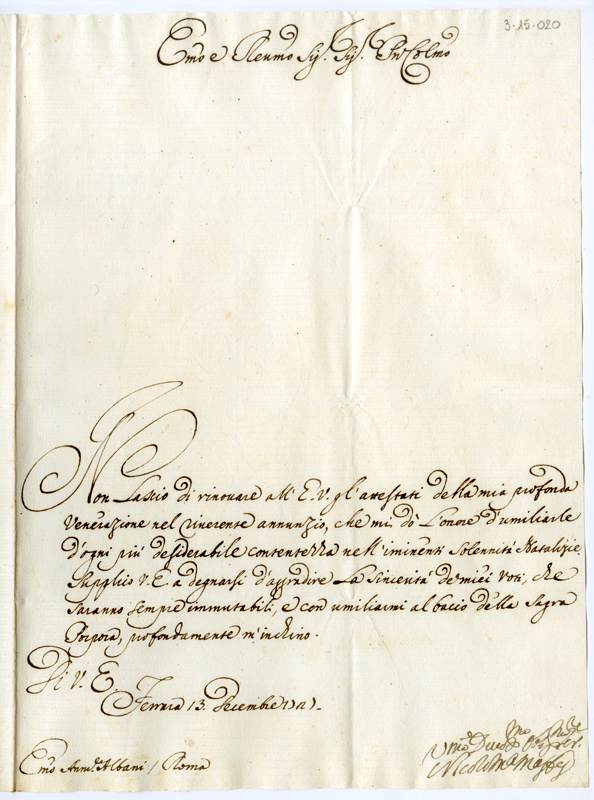 3-15-020
Emo e Reumo Sig.r Sig.r Pron Colmo
Non Lascio di rinouare all' E. V. gl' attestati della mia profonda
Venerazione nel riuerente annunzio, che mi dò l'onore d'umiliarle
d'ogni più desiderabile contentezza nell' iminenti Solennità Natalizie,
Supplico V. E. a degnarsi d'aggradire La Sincerità de miei voti, che
saranno sempre immutabili, e con umiliarmi al bacio della Sagra
Porpora, profondamente m'inchino.
Di V. E.
Ferrara 13. Decembre
Umo Deuo
Emo Ann.e Albani / Roma